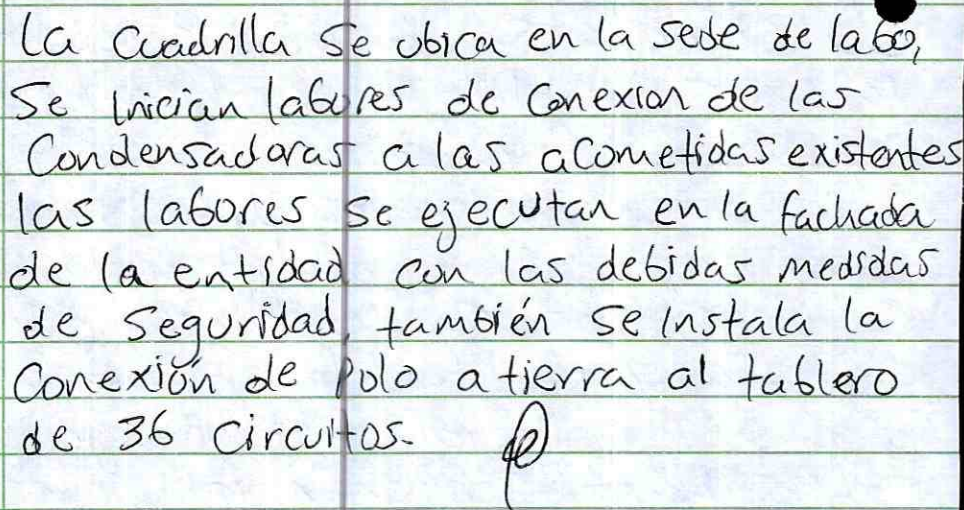 La Cuadrilla se ubica en la sede de labo,
Se inician labores de Conexion de las
Condensadoras a las acometidas existentes
las labores se ejecutan en la fachada
de la entidad con las debidas medidas
de seguridad, también se instala la
Conexión de Polo a tierra al tablero
de 36 circuitos.